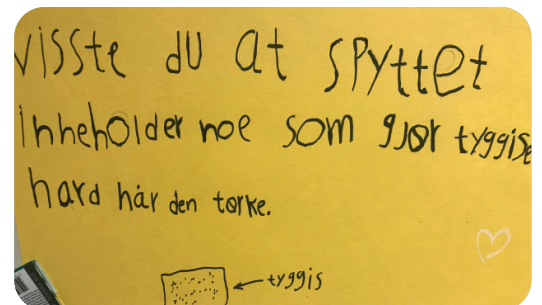 visste du at spyttet
inneholder noe som gjør tyggise
hard når den tørke.
tyggis